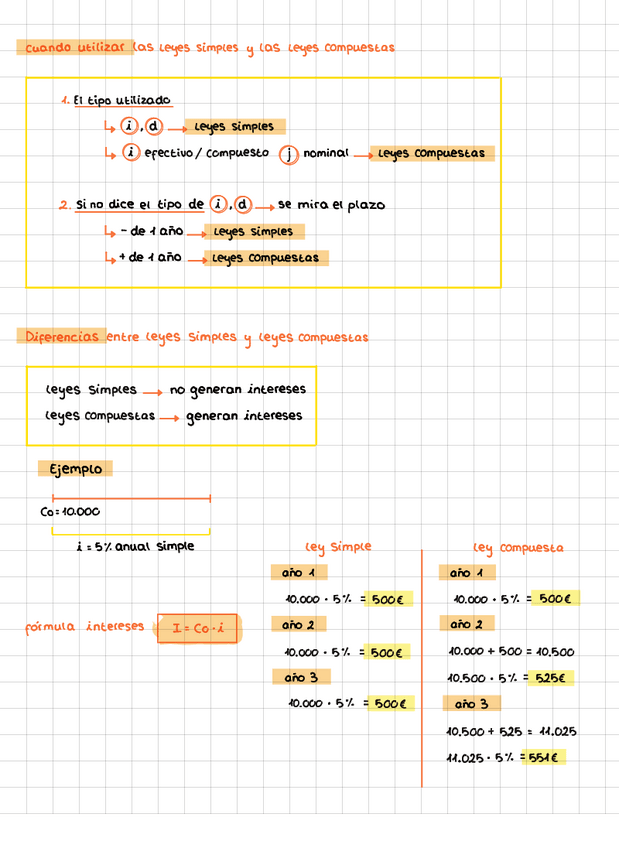 Cuando utilizar las leyes simples y las leyes compuestas
1. El tipo utilizado
↳ i, d → leyes simples
↳ i efectivo/compuesto j nominal → leyes compuestas
2. si no dice el tipo de i, d → se mira el plazo
↳ - de 1 año → leyes simples
↳ + de 1 año → leyes compuestas
Diferencias entre leyes simples y leyes compuestas
leyes simples → no generan intereses
leyes compuestas → generan intereses
Ejemplo
Co=10.000
i = 5% anual simple
fórmula intereses I = Co · i
ley simple
año 1
10.000 · 5% = 500€
año 2
10.000 · 5% = 500€
año 3
10.000 · 5% = 500€
ley compuesta
año 1
10.000 · 5% = 500€
año 2
10.000 + 500 = 10.500
10.500 · 5% = 525€
año 3
10.500 + 525 = 11.025
11.025 · 5% = 551€